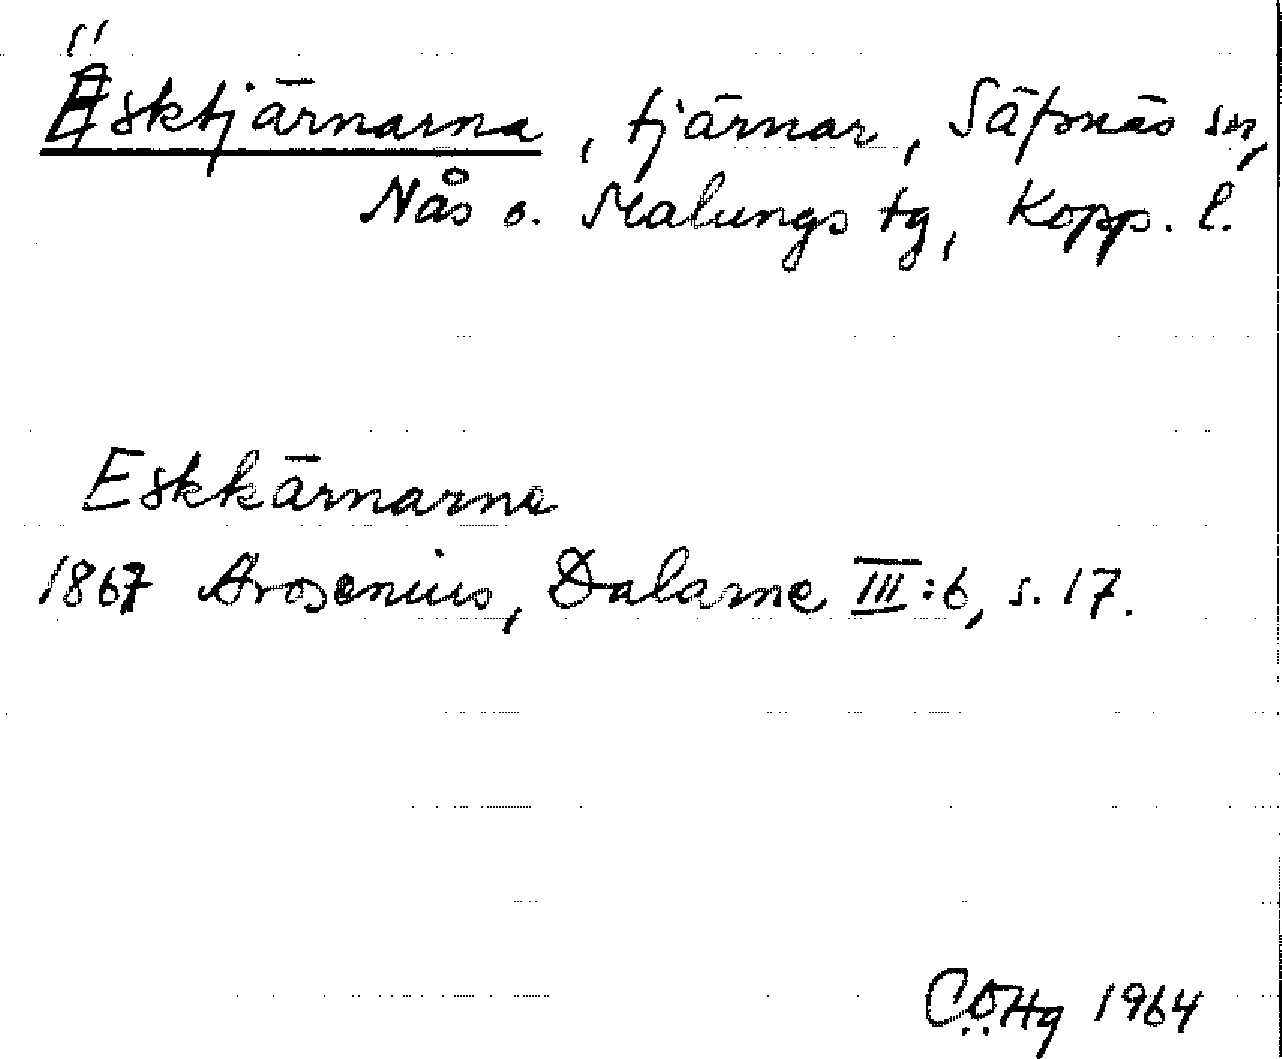 Äsktjärnarna, tjärnar, Säfsnäs sn,
Nås o. Malungs tg, Kopp. l.
Eskkärnarne
1867 Arosenius, Dalarne III:6, s. 17.
CÖHg 1964